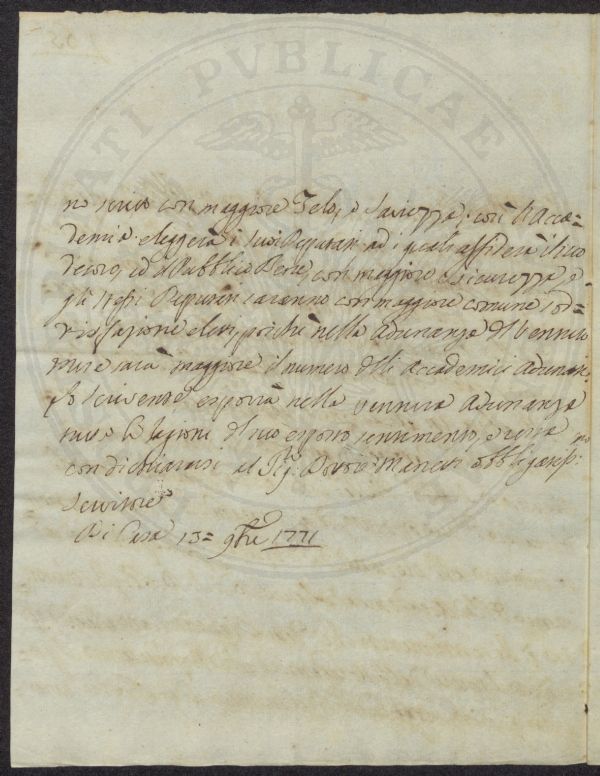 ATI PVBLICAE
no scritto con maggiore Zelo, e Saviezza; così l'Acca=
demia eleggerà i suoi Deputati, ad i quali affiderà il suo
decoro, ed il Pubblico Bene, con maggiore sicurezza, e
gli stessi Deputati saranno con maggiore comune sod=
disfazione eletti, poichè nella Adunanza di Venerdì
sarà maggiore il numero delli Accademici Adunati.
Lo scrivente esporrà nella ventura Adunanza
tutte le ragioni del suo esposto sentimento, e resta
con dichiararsi al Sig. Dottore Manetti obbligatiss:mo
Servitore
Di Casa 13= 9bre 1771